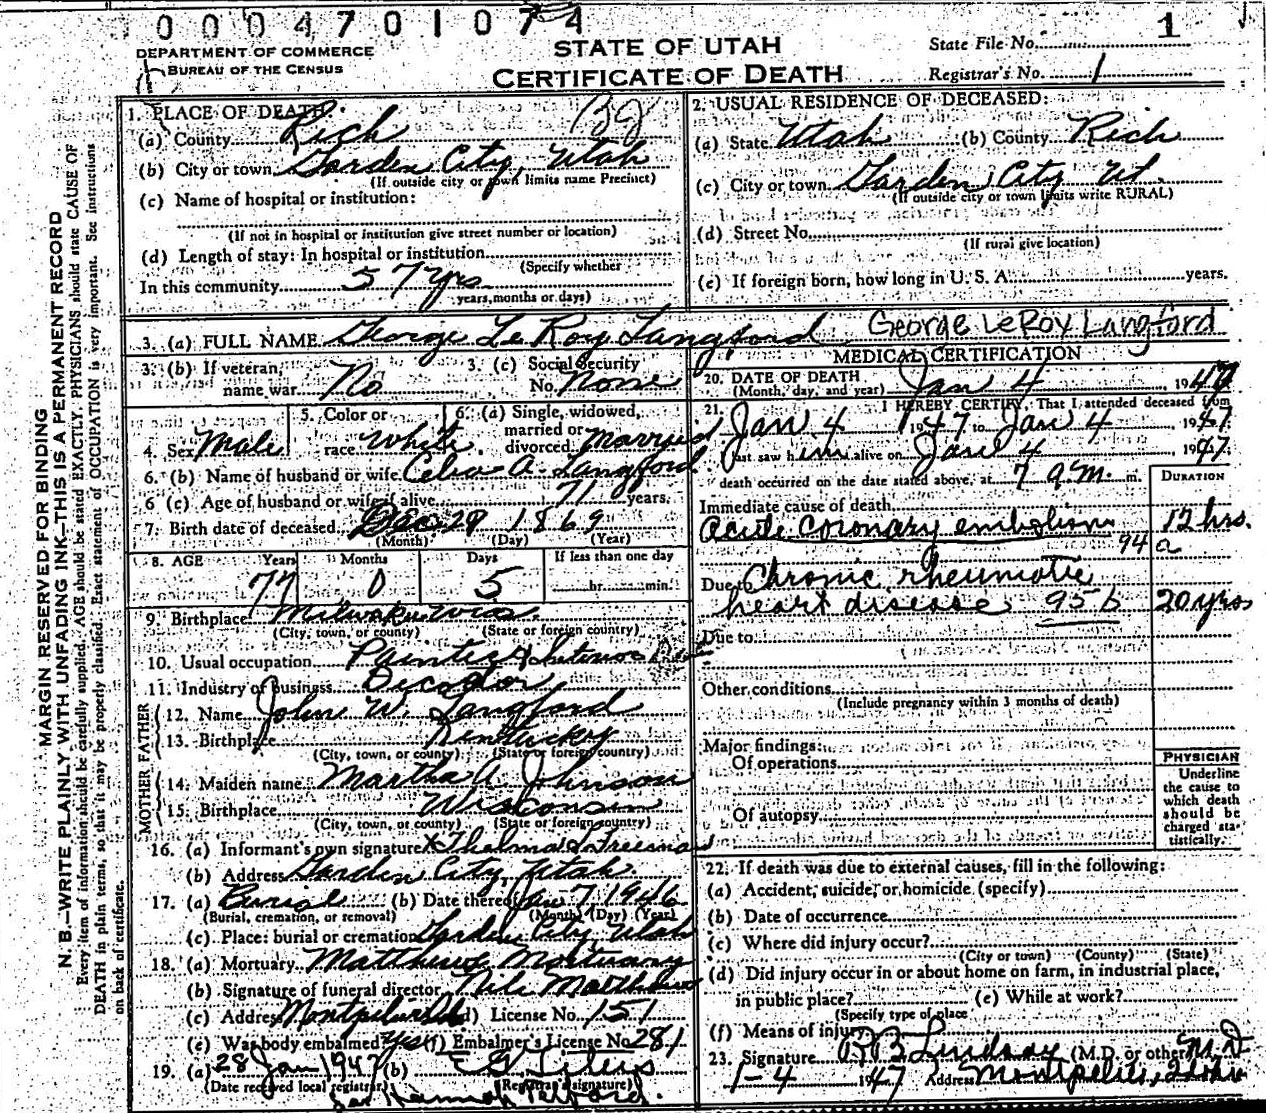 0 0 0 4 7 0 1 0 7 4
1
DEPARTMENT OF COMMERCE
BUREAU OF THE CENSUS
STATE OF UTAH
CERTIFICATE OF DEATH
State File No.
Registrar's No. 1
MARGIN RESERVED FOR BINDING
N. B.—WRITE PLAINLY WITH UNFADING INK—THIS IS A PERMANENT RECORD
Every item of information should be carefully supplied. AGE should be stated EXACTLY. PHYSICIANS should state CAUSE OF
DEATH in plain terms, so that it may be properly classified. Exact statement of OCCUPATION is very important. See instructions
on back of certificate.
1. PLACE OF DEATH:
(a) County Rich
(b) City or town Garden City, Utah
(If outside city or town limits name Precinct)
(c) Name of hospital or institution:
(If not in hospital or institution give street number or location)
(d) Length of stay: In hospital or institution
(Specify whether
In this community 57 yrs
years, months or days)
2. USUAL RESIDENCE OF DECEASED:
(a) State Utah (b) County Rich
(c) City or town Garden City Ut.
(If outside city or town limits write RURAL)
(d) Street No.
(If rural give location)
(e) If foreign born, how long in U. S. A. years.
3. (a) FULL NAME George Le Roy Langford George LeRoy Langford
3. (b) If veteran, name war No 3. (c) Social Security No. None
4. Sex Male 5. Color or race White 6. (a) Single, widowed, married or divorced Married
6. (b) Name of husband or wife Celia A. Langford
6 (c) Age of husband or wife if alive 71 years.
7. Birth date of deceased Dec. 28 1869
(Month) (Day) (Year)
8. AGE Years Months Days If less than one day
77 0 5 hr. min.
9. Birthplace Milwaku Wis.
(City, town, or county) (State or foreign country)
10. Usual occupation Painter & Interior
11. Industry or business Decorator
FATHER
12. Name John W. Langford
13. Birthplace Kentucky
(City, town, or county) (State or foreign country)
MOTHER
14. Maiden name Martha A Johnson
15. Birthplace Wisconsin
(City, town, or county) (State or foreign country)
16. (a) Informant's own signature X Thelma L Freeman
(b) Address Garden City, Utah
17. (a) Burial (b) Date thereof Jan 7 1946
(Burial, cremation, or removal) (Month) (Day) (Year)
(c) Place: burial or cremation Garden City, Utah
18. (a) Mortuary Matthews Mortuary
(b) Signature of funeral director
(c) Address Montpelier (d) License No. 151
(e) Was body embalmed yes (f) Embalmer's License No. 281
19. (a) 28 Jan 1947 (b)
(Date received local registrar) (Registrar's signature)
MEDICAL CERTIFICATION
20. DATE OF DEATH
(Month, day, and year) Jan 4, 1947
21. I HEREBY CERTIFY, That I attended deceased from
Jan 4 1947 to Jan 4, 1947
last saw him alive on Jan 4, 1947
death occurred on the date stated above, at 7 a.m. m.
DURATION
Immediate cause of death
acute coronary embolism 12 hrs.
94 a
Due to Chronic rheumatic
heart disease 95 b 20 yrs
Due to
Other conditions
(Include pregnancy within 3 months of death)
Major findings:
Of operations
Of autopsy
PHYSICIAN
Underline
the cause to
which death
should be
charged sta-
tistically.
22. If death was due to external causes, fill in the following:
(a) Accident, suicide, or homicide (specify)
(b) Date of occurrence
(c) Where did injury occur?
(City or town) (County) (State)
(d) Did injury occur in or about home on farm, in industrial place,
in public place? (e) While at work?
(Specify type of place
(f) Means of injury
23. Signature R B Lindsay (M.D. or other) M.D
1-4 1947 Address Montpelier, Idaho